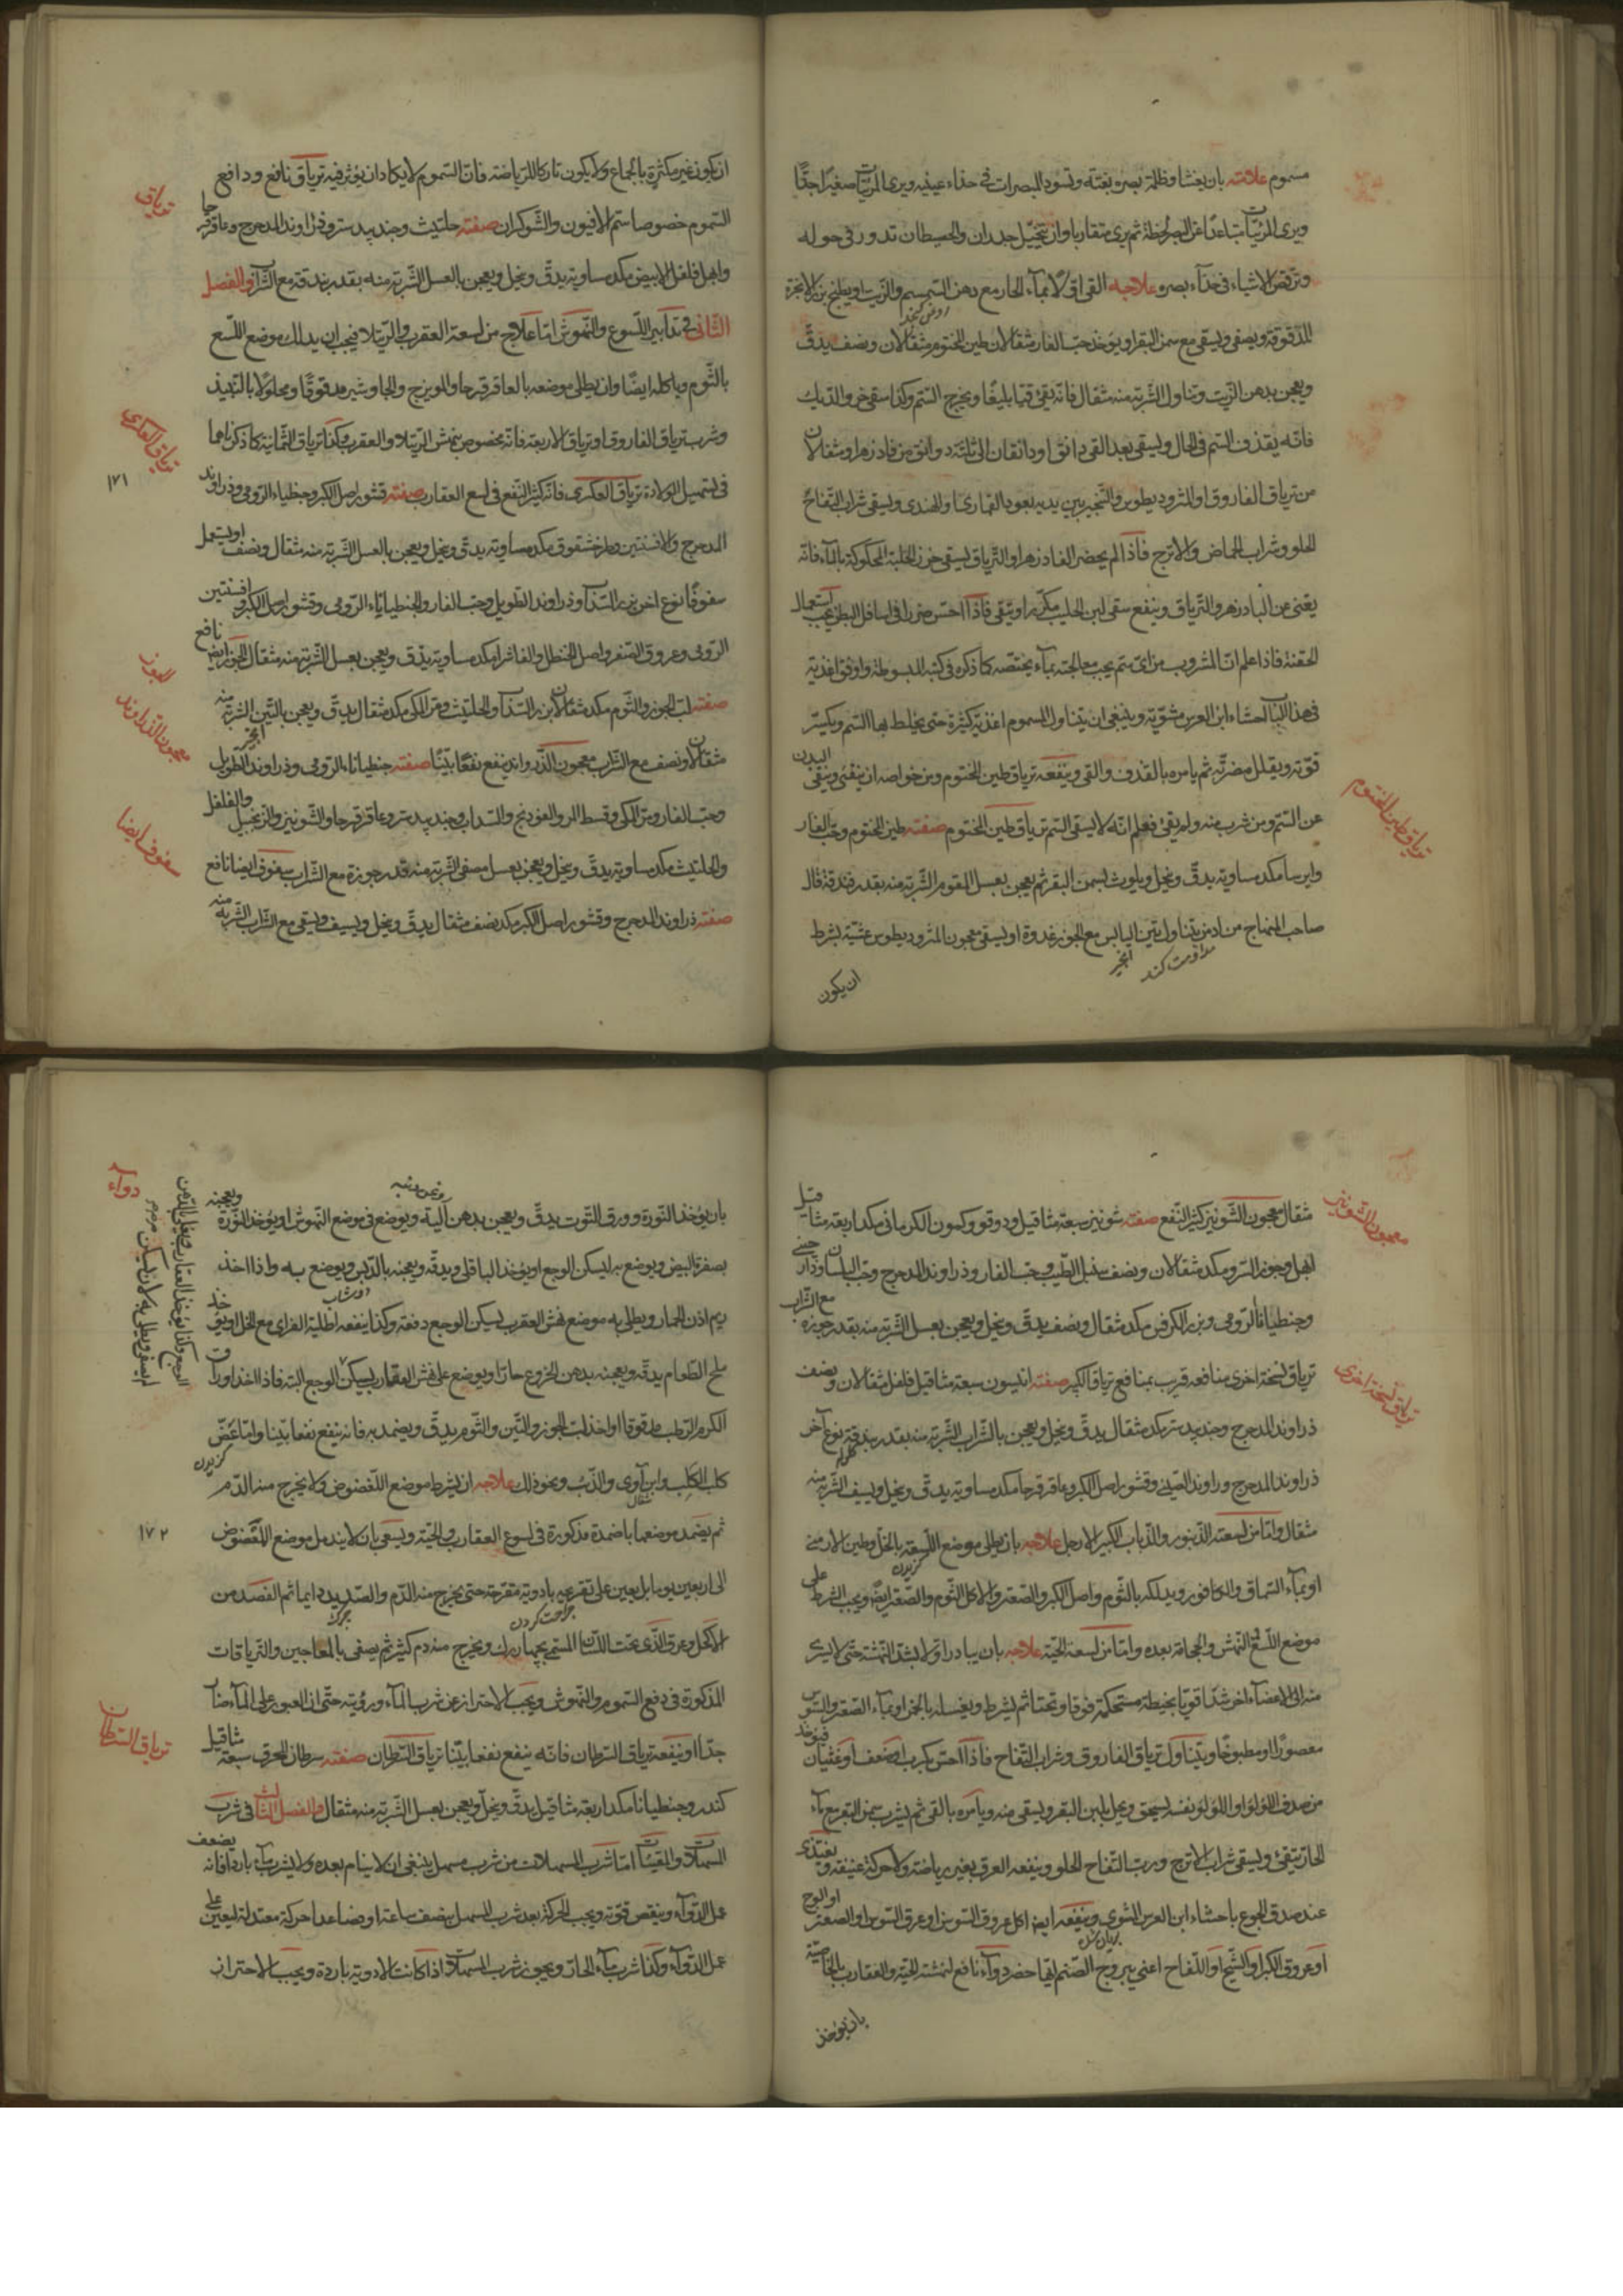 مسموم علامته بان يغشا وظلمة بصره بغتة وتسود المبصرات في حذاء عينيه ويرى المرئيات صغيرا جدّا
ويرى المرئيات متباعدًا عن البصر لحظة ثم يرى متقاربا وان يتخيل جدران والحيطان تدور في حوله
وترقص الاشياء في حذاء بصره علاجه القي اوّلا بماء الحار مع دهن السمسم والزيت او يطبخ بزر الانجرة
المدقوقة ويصفى ويسقى مع سمن البقر او يؤخذ حب الغار مثقالان طين المختوم مثقالان ونصف يدقّ
ويعجن بدهن الزيت وتناول الشربة منه مثقال فانّه يقئ قيئا بليغًا ويخرج السّم وكذا سقى خرو الديك
فانّه يقذف السّم في الحال ويسقى بعد القي دانق او دانقان الى ثلثة دوانق من فادزهر او مثقالان
من ترياق الفاروق او المثروديطوس والتبخير بين يديه بعود القمارى او الهندى ويسقى شراب التفاح
الحلو وشراب الحماض والاترج فاذا لم يحضر الفادزهر او الترياق يسقى المحكوكة بالماء فانّه
يغنى عن البادزهر والترياق وينفع سقى لبن الحليب مكررا ويتقى فاذا احسّ ضررا في اسافل البطن يجب استعمال
الحقنة فاذا علم انّ المشروب من اىّ سّم يجب معالجته بماء يختصّه كما ذكره في كتبه المبسوطة واوفق اغذية
في هذا الباب احشاء ابن العرس مشوّية وينبغى ان يتناول المسموم اغذية كثيرة حتى يخلط بها السّم ويكسر
قوّته ويقلل مضرّته ثم يامره بالقذف والقى وينفعه ترياق طين المختوم ومن خواصه ان ينقى البدن
عن السّم ومن شرب منه ولم يقئ فعلم انّه لا يسقى السّم ترياق طين المختوم صفته طين المختوم وحب الغار
وايرسا مكد مساوية يدقّ وينخل ويلوث بسمن البقر ثم يعجن بعسل المقوم الشربة منه بقدر فندقة قال
صاحب المنهاج من ادمن بتناول تين اليابس مع الجوز غدوة او يسقى معجون المثروديطوس عشيّة بشرط
مداومت كند
انجير
ان يكون
ترياق طين المختوم
ان يكون غير مكثرة بالجماع ولا يكون تاركا للرياضة فانّ السّموم لا يكاد ان يؤثر فيه ترياق نافع ودافع
السّموم خصوصا سّم الافيون والشوكران صفته حلتيث وجندبيدستر وذراوند المدحرج وعاقرقرحا
وابهل وفلفل الابيض مكد مساوية يدقّ وينخل ويعجن بالعسل الشربة منه بقدر بندقة مع الشراب والفصل
الثانى في تدابير اللسوع والنهوش امّا علاج من لسعة العقرب والرتيلا فيجب ان يدلك موضع اللسع
بالثّوم وياكله ايضًا وان يطلى موضعه بالعاقرقرحا والمويزج والجاوشير مدقوقًا ومحلولا بالنبيذ
وشرب ترياق الفاروق او ترياق الاربعة فانّه مخصوص بنهش الرتيلا والعقرب وكذا ترياق الثمانية كما ذكرناهما
في تسهيل الولادة ترياق العكرى فانّه كثير النفع في لسع العقارب صفته قشور اصل الكبر وجنطياناء الرومى وذراوند
المدحرج والافسنتين وطرخشقوق مكد مساوية يدقّ وينخل ويعجن بالعسل الشربة منه مثقال ونصف او يستعمل
سفوفًا نوع اخر بزر السّذاب وذراوند الطويل وحب الغار والجنطياناء الرومى وقشور اصل الكبر وافسنتين
الرومى وعروق الصفر واصل الحنظل والفاشرا مكد مساوية يدقّ ويعجن بعسل الشربة منه مثقال الجوز ايضا نافع
صفته لبّ الجوز والثّوم مكد مثقالان بزر السذاب والحلتيث ومرّ المكى مكد مثقال يدقّ ويعجن بالتّين الشربة منه
مثقالان ونصف مع الشراب معجون الذّراوند ينفع نفعًا بيّنًا صفته جنطياناء الرومى وذراوند الطّويل
وحبّ الغار ومرّ المكى وقسط المر والفودنج والسّداب وجندبيدستر وعاقرقرحا والشونيز والزنجبيل والفلفل
والحلتيث مكد مساوية يدقّ وينخل ويعجن بعسل مصفى الشربة منه قدر جوزة مع الشراب سفوف ايضا نافع
صفته ذراوند المدحرج وقشور اصل الكبر مكد نصف مثقال يدقّ وينخل ويسف ويسقى مع الشراب الشربة منه
ترياق
ترياق العكرى
١٧١
الجوز
معجون الذّراوند
سفوف ايضا
مثقال معجون الشّونيز كثير النّفع صفته شونيز سبعة مثاقيل ودوقو وكمون الكرمانى مكد اربعة مثاقيل
ابهل وجوز السّرو مكد مثقالان ونصف سنبل الطّيب وحب الغار وذراوند المدحرج وحب البلسان
وجنطياناء الرّومى وبزر الكرفس مكد مثقال ونصف يدقّ وينخل ويعجن بعسل الشّربة منه بقدر جوزة مع الشّراب
ترياق نسخة اخرى منافعه قريب بمنافع ترياق الكبير صفته انيسون سبعة مثاقيل فلفل مثقالان ونصف
ذراوند المدحرج وجندبيدستر مكد مثقال يدقّ وينخل ويعجن بالشّراب الشّربة منه بقدر بندقة نوع آخر
ذراوند المدحرج وراوند الصّينى وقشور اصل الكبر وعاقرقرحا مكد مساوية يدقّ وينخل ويسف الشّربة منه
مثقال وامّا من لسعة الذّنبور والذّباب الكبير الارجل علاجه بان يطلى موضع اللّسعة بالخل وطين الارمنى
او بماء السّماق والكافور ويدلكه بالثّوم واصل الكبر والصّعتر والاكل الثّوم والصّعتر ايضًا ويجب الشّرط على
موضع اللّسع النّهش والحجامة بعده وامّا من لسعة الحيّة علاجه بان يبادر اوّلا بشدّ النّهشة حتّى لا يسرى
منه الى الاعضاء اخر شدّا قويّا بخيطة مستحكمة فوقا وتحتا ثم يشرط ويغسله بالخمر او بماء الصّعتر والسّوس
معصورًا او مطبوخًا ويتناول ترياق الفاروق وشراب التّفاح فاذا احسّ بكرب او ضعف او غثيان فيؤخذ
من صدف اللؤلؤ او اللؤلؤ نفسه يسحق ويحل بلبن البقر ويسقى منه ويامره بالقى ثم يشرب سمن البقر مع ماء
الحار يتقئ ويسقى شراب الاترج وربّ التّفاح الحلو وينفعه العرق بغير رياضة ولا حركة عنيفة ويغتذى
عند صدق الجوع باحشاء ابن العرس المشوى وينفعه ايضا اكل عروق السّوس او عرق السّوس او الصعتر او الوج
او عروق الكبر او الشّيح او اللّفاح اعنى يبروج الصّنم ايّها حضر دواء نافع لنهشة الحيّة والعقارب بالخاصية
بان يؤخذ
معجون الشّونيز
ترياق نسخة اخرى
بان يؤخذ النّورة وورق التّوت يدقّ ويعجن بدهن آلية ويوضع في موضع النّهوش او يؤخذ النّورة ويعجنه
بصفرة البيض ويوضع به ليسكن الوجع او يؤخذ الباقلى ويدقّه ويعجنه بالدّبس ويوضع به واذا اخذ
ريم اذن الحمار ويطلى به موضع نهش العقرب ليسكن الوجع دفعة وكذا ينفعه اطلية الفراى مع الخل او يؤخذ
ملح الطّعام يدقّه ويعجنه بدهن الخروع حارّا ويوضع على نهش العقارب ليسكن الوجع البتّه فاذا اخذ اوراق
الكرم الرّطب مدقوقا او اخذ لبّ الجوز والتّين والثّوم يدقّ ويضمد به فانّه ينفع نفعا بيّنا وامّا عضّ
كلب الكلب وابن آوى والذّئب ونحو ذلك علاجه ان يشرط موضع المعضوض ولا يخرج منه الدّم
ثم يضمد موضعها باضمدة مذكورة في لسوع العقارب والحيّة ويسعى بان لا يندمل موضع المعضوض
الى اربعين يوما بل يعين على تقرّحه بادوية مقرّحة حتى يخرج منه الدّم والصّديد دايما ثم الفصد من
الاكحل وعرق الّذى تحت اللّسان المسمّى بچهار رك ويخرج منه دم كثير ثم يصفى بالمعاجين والتّرياقات
المذكورة في دفع السّموم والنّهوش ويجب الاحتراز عن شرب الماء ورؤيته حتّى ان العبور على الماء ضارّ
جدّا او ينفعه ترياق السّرطان فانّه ينفع نفعا بيّنا ترياق السّرطان صفته سرطان المحرق سبعة مثاقيل
كندر وجنطيانا مكد اربعة مثاقيل يدقّ وينخل ويعجن بعسل الشّربة منه مثقال والفصل الثالث في شرب
المسهلات والمقيّئات امّا شرب المسهلات من شرب مسهل ينبغى ان لا ينام بعده ولا يشرب ماء باردا فانّه يضعف
عمل الدّواء وينقص قوّته ويجب الحركة بعد شرب المسهل بنصف ساعة او صاعدا حركة معتدلة ليعين على
عمل الدّواء وكذا شرب ماء الحارّ ويجوز شرب المسهلات اذا كانت الادوية باردة ويجب الاحتراز
دواء
١٧٢
ترياق السّرطان